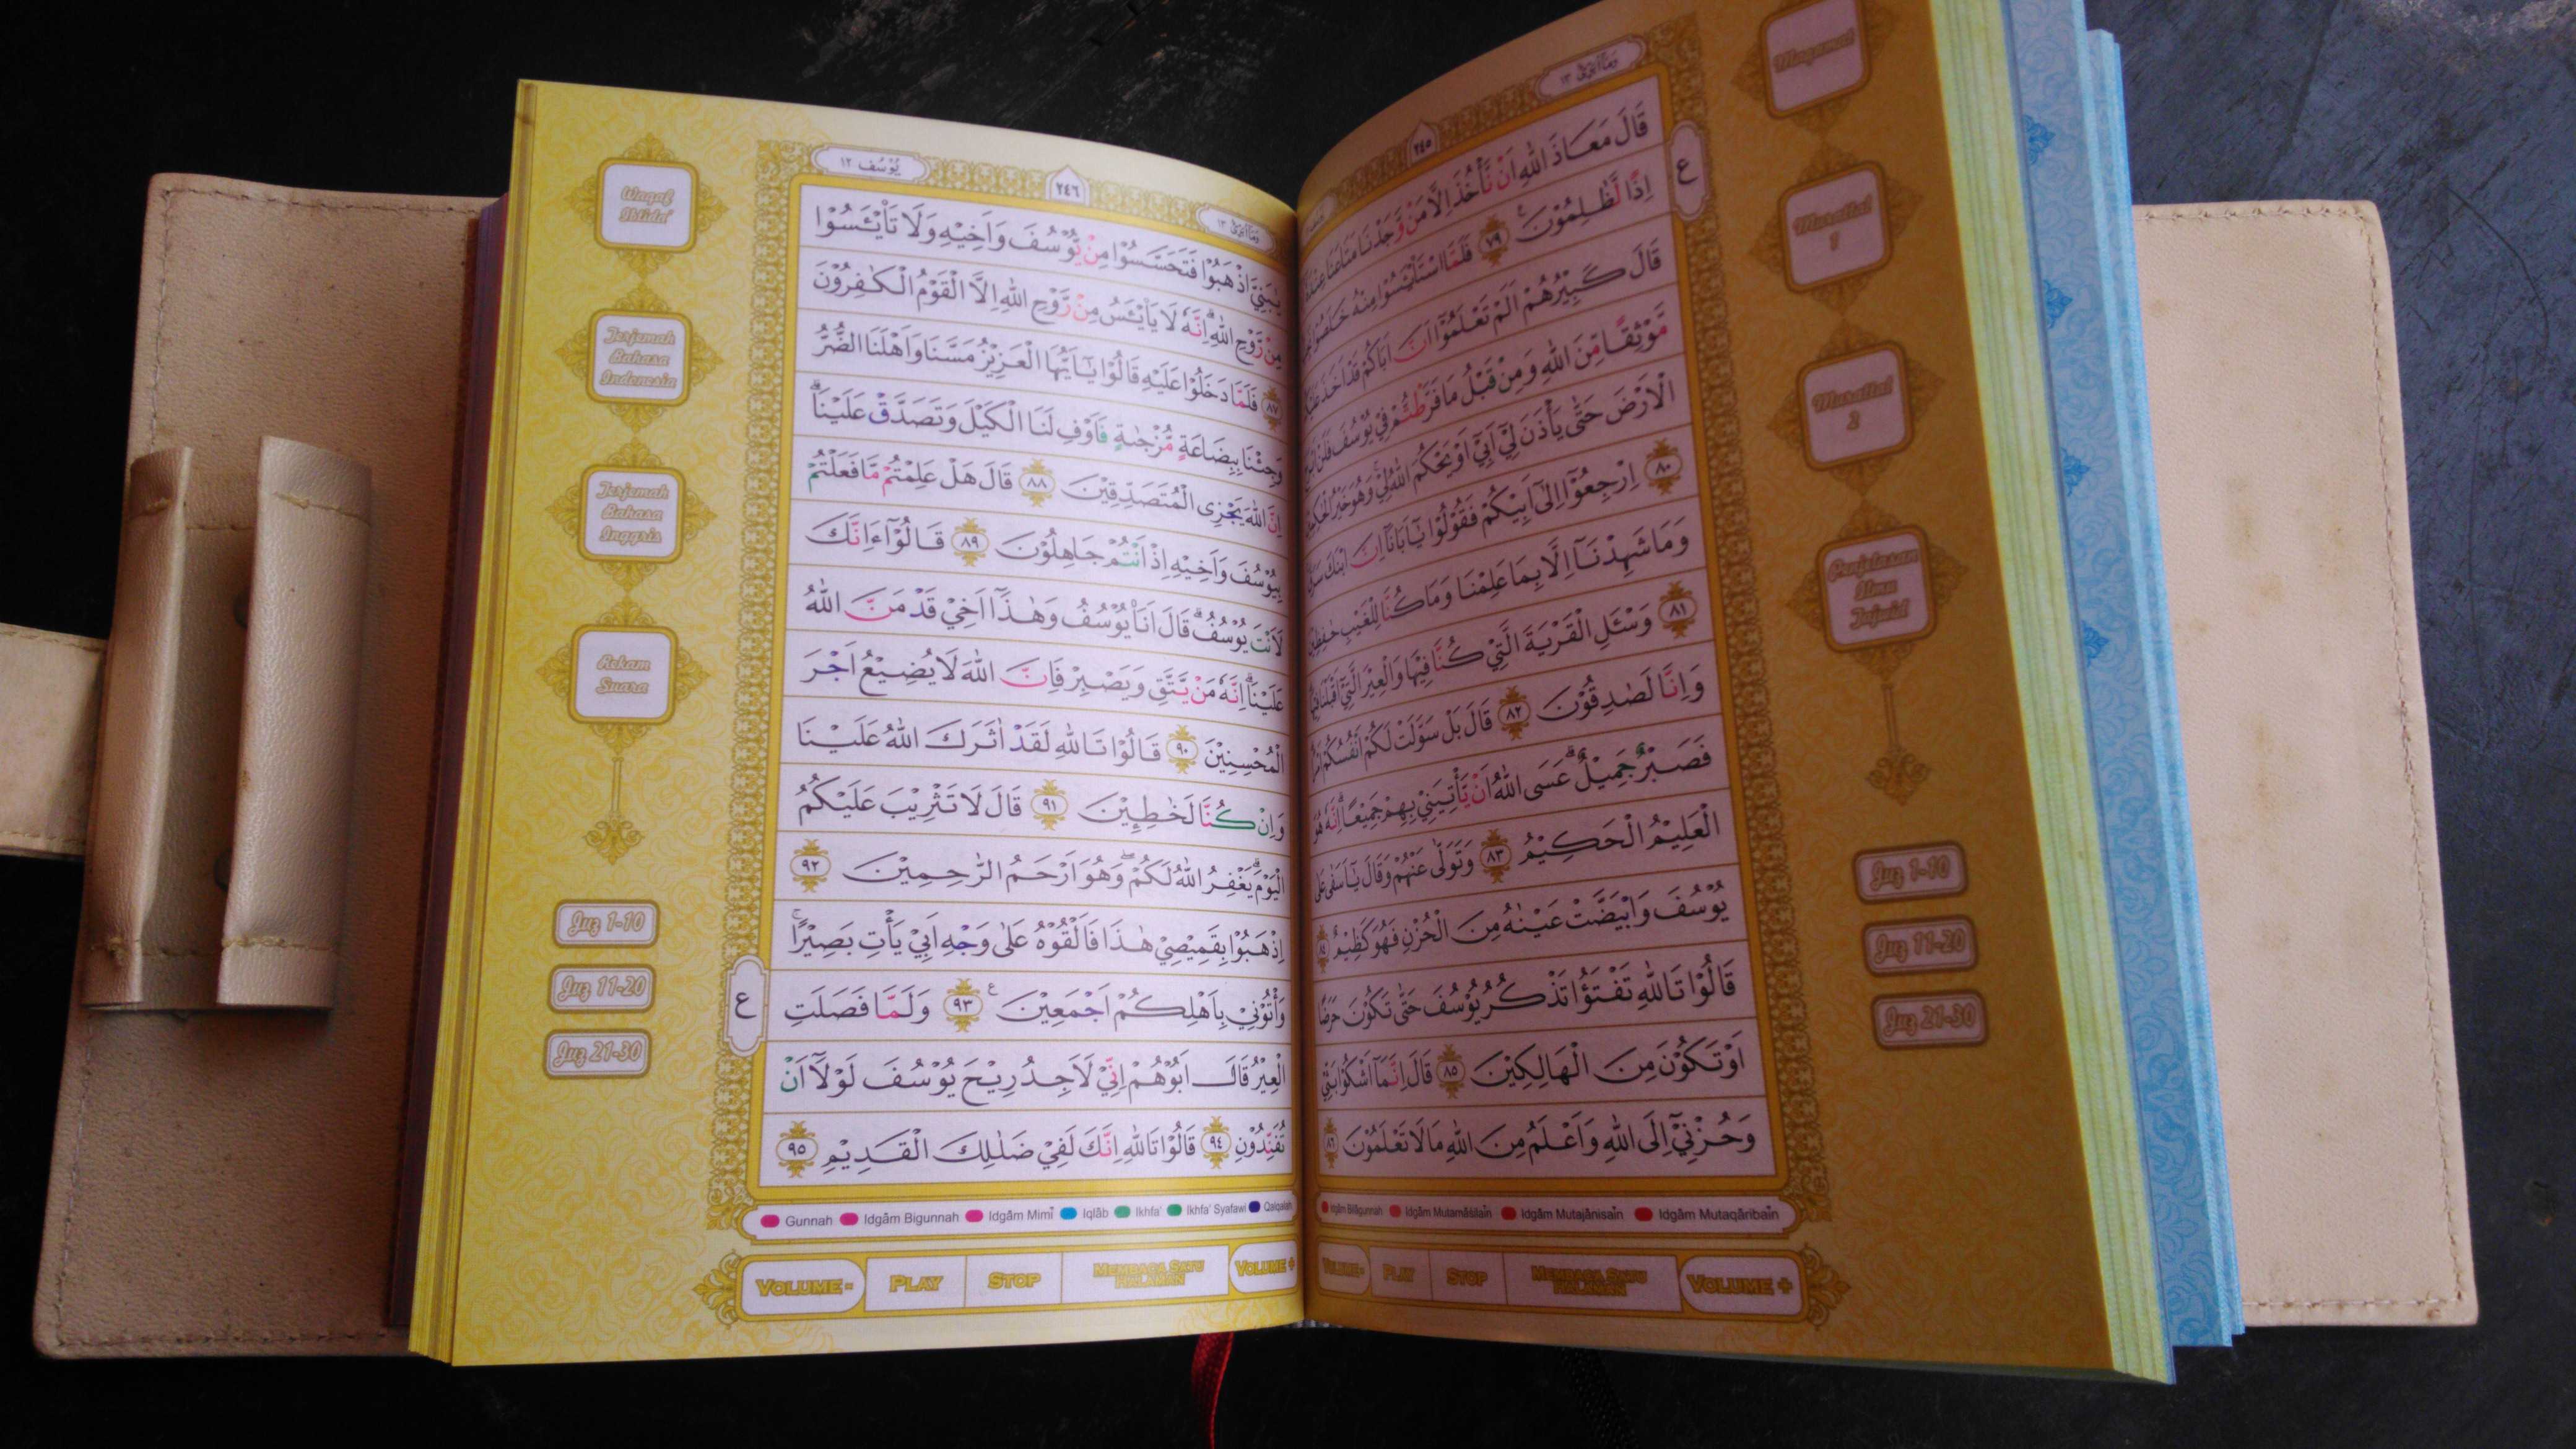 وَمَآ اُبَرِّئُ ١٣
٢٤٥
ع
قَالَ مَعَاذَ اللّٰهِ اَنْ نَّأْخُذَ اِلَّا مَنْ وَّجَدْنَا مَتَاعَنَا عِنْدَهٗٓ
اِذًا لَّظٰلِمُوْنَ ࣖ ٧٩ فَلَمَّا اسْتَا۟يْـَٔسُوْا مِنْهُ خَلَصُوْا
قَالَ كَبِيْرُهُمْ اَلَمْ تَعْلَمُوْٓا اَنَّ اَبَاكُمْ قَدْ اَخَذَ عَلَيْكُمْ
مَّوْثِقًا مِّنَ اللّٰهِ وَمِنْ قَبْلُ مَا فَرَّطْتُّمْ فِيْ يُوْسُفَ فَلَنْ
الْاَرْضَ حَتّٰى يَأْذَنَ لِيْٓ اَبِيْٓ اَوْ يَحْكُمَ اللّٰهُ لِيْۚ وَهُوَ خَيْرُ الْحٰكِمِيْنَ
٨٠ اِرْجِعُوْٓا اِلٰٓى اَبِيْكُمْ فَقُوْلُوْا يٰٓاَبَانَآ اِنَّ ابْنَكَ سَرَقَ
وَمَا شَهِدْنَآ اِلَّا بِمَا عَلِمْنَا وَمَا كُنَّا لِلْغَيْبِ حٰفِظِيْنَ
٨١ وَسْـَٔلِ الْقَرْيَةَ الَّتِيْ كُنَّا فِيْهَا وَالْعِيْرَ الَّتِيْٓ اَقْبَلْنَا فِيْهَا
وَاِنَّا لَصٰدِقُوْنَ ٨٢ قَالَ بَلْ سَوَّلَتْ لَكُمْ اَنْفُسُكُمْ اَمْرًا
فَصَبْرٌ جَمِيْلٌ ۗعَسَى اللّٰهُ اَنْ يَّأْتِيَنِيْ بِهِمْ جَمِيْعًا ۗاِنَّهٗ هُوَ
الْعَلِيْمُ الْحَكِيْمُ ٨٣ وَتَوَلّٰى عَنْهُمْ وَقَالَ يٰٓاَسَفٰى عَلٰى
يُوْسُفَ وَابْيَضَّتْ عَيْنٰهُ مِنَ الْحُزْنِ فَهُوَ كَظِيْمٌ ٨٤
قَالُوْا تَاللّٰهِ تَفْتَؤُا تَذْكُرُ يُوْسُفَ حَتّٰى تَكُوْنَ حَرَضًا
اَوْ تَكُوْنَ مِنَ الْهَالِكِيْنَ ٨٥ قَالَ اِنَّمَآ اَشْكُوْا بَثِّيْ
وَحُزْنِيْٓ اِلَى اللّٰهِ وَاَعْلَمُ مِنَ اللّٰهِ مَا لَا تَعْلَمُوْنَ ٨٦
Idgâm Bilâgunnah Idgâm Mutamâśilain Idgâm Mutajânisain Idgâm Mutaqâribain
VOLUME - PLAY STOP MEMBACA SATU HALAMAN VOLUME +
Murattal
1
Murattal
2
Penjelasan
Ilmu
Tajwid
Juz 1-10
Juz 11-20
Juz 21-30
يُوْسُف ١٢
٢٤٦
وَمَآ اُبَرِّئُ ١٣
يٰبَنِيَّ اذْهَبُوْا فَتَحَسَّسُوْا مِنْ يُّوْسُفَ وَاَخِيْهِ وَلَا تَا۟يْـَٔسُوْا
مِنْ رَّوْحِ اللّٰهِ ۗاِنَّهٗ لَا يَا۟يْـَٔسُ مِنْ رَّوْحِ اللّٰهِ اِلَّا الْقَوْمُ الْكٰفِرُوْنَ
٨٧ فَلَمَّا دَخَلُوْا عَلَيْهِ قَالُوْا يٰٓاَيُّهَا الْعَزِيْزُ مَسَّنَا وَاَهْلَنَا الضُّرُّ
وَجِئْنَا بِبِضَاعَةٍ مُّزْجٰىةٍ فَاَوْفِ لَنَا الْكَيْلَ وَتَصَدَّقْ عَلَيْنَا ۗ
اِنَّ اللّٰهَ يَجْزِى الْمُتَصَدِّقِيْنَ ٨٨ قَالَ هَلْ عَلِمْتُمْ مَّا فَعَلْتُمْ
بِيُوْسُفَ وَاَخِيْهِ اِذْ اَنْتُمْ جَاهِلُوْنَ ٨٩ قَالُوْٓا ءَاِنَّكَ
لَاَنْتَ يُوْسُفُ ۗقَالَ اَنَا۠ يُوْسُفُ وَهٰذَآ اَخِيْ قَدْ مَنَّ اللّٰهُ
عَلَيْنَا ۗاِنَّهٗ مَنْ يَّتَّقِ وَيَصْبِرْ فَاِنَّ اللّٰهَ لَا يُضِيْعُ اَجْرَ
الْمُحْسِنِيْنَ ٩٠ قَالُوْا تَاللّٰهِ لَقَدْ اٰثَرَكَ اللّٰهُ عَلَيْنَا
وَاِنْ كُنَّا لَخٰطِـِٕيْنَ ٩١ قَالَ لَا تَثْرِيْبَ عَلَيْكُمُ
الْيَوْمَ ۗيَغْفِرُ اللّٰهُ لَكُمْ ۖوَهُوَ اَرْحَمُ الرّٰحِمِيْنَ ٩٢
اِذْهَبُوْا بِقَمِيْصِيْ هٰذَا فَاَلْقُوْهُ عَلٰى وَجْهِ اَبِيْ يَأْتِ بَصِيْرًاۚ
وَأْتُوْنِيْ بِاَهْلِكُمْ اَجْمَعِيْنَ ࣖ ٩٣ وَلَمَّا فَصَلَتِ
الْعِيْرُ قَالَ اَبُوْهُمْ اِنِّيْ لَاَجِدُ رِيْحَ يُوْسُفَ لَوْلَآ اَنْ
تُفَنِّدُوْنِ ٩٤ قَالُوْا تَاللّٰهِ اِنَّكَ لَفِيْ ضَلٰلِكَ الْقَدِيْمِ ٩٥
ع
Gunnah Idgâm Bigunnah Idgâm Mimi Iqlâb Ikhfa' Ikhfa' Syafawi Qalqalah
VOLUME - PLAY STOP MEMBACA SATU HALAMAN VOLUME +
Waqaf
Ibtida'
Terjemah
Bahasa
Indonesia
Terjemah
Bahasa
Inggris
Rekam
Suara
Juz 1-10
Juz 11-20
Juz 21-30